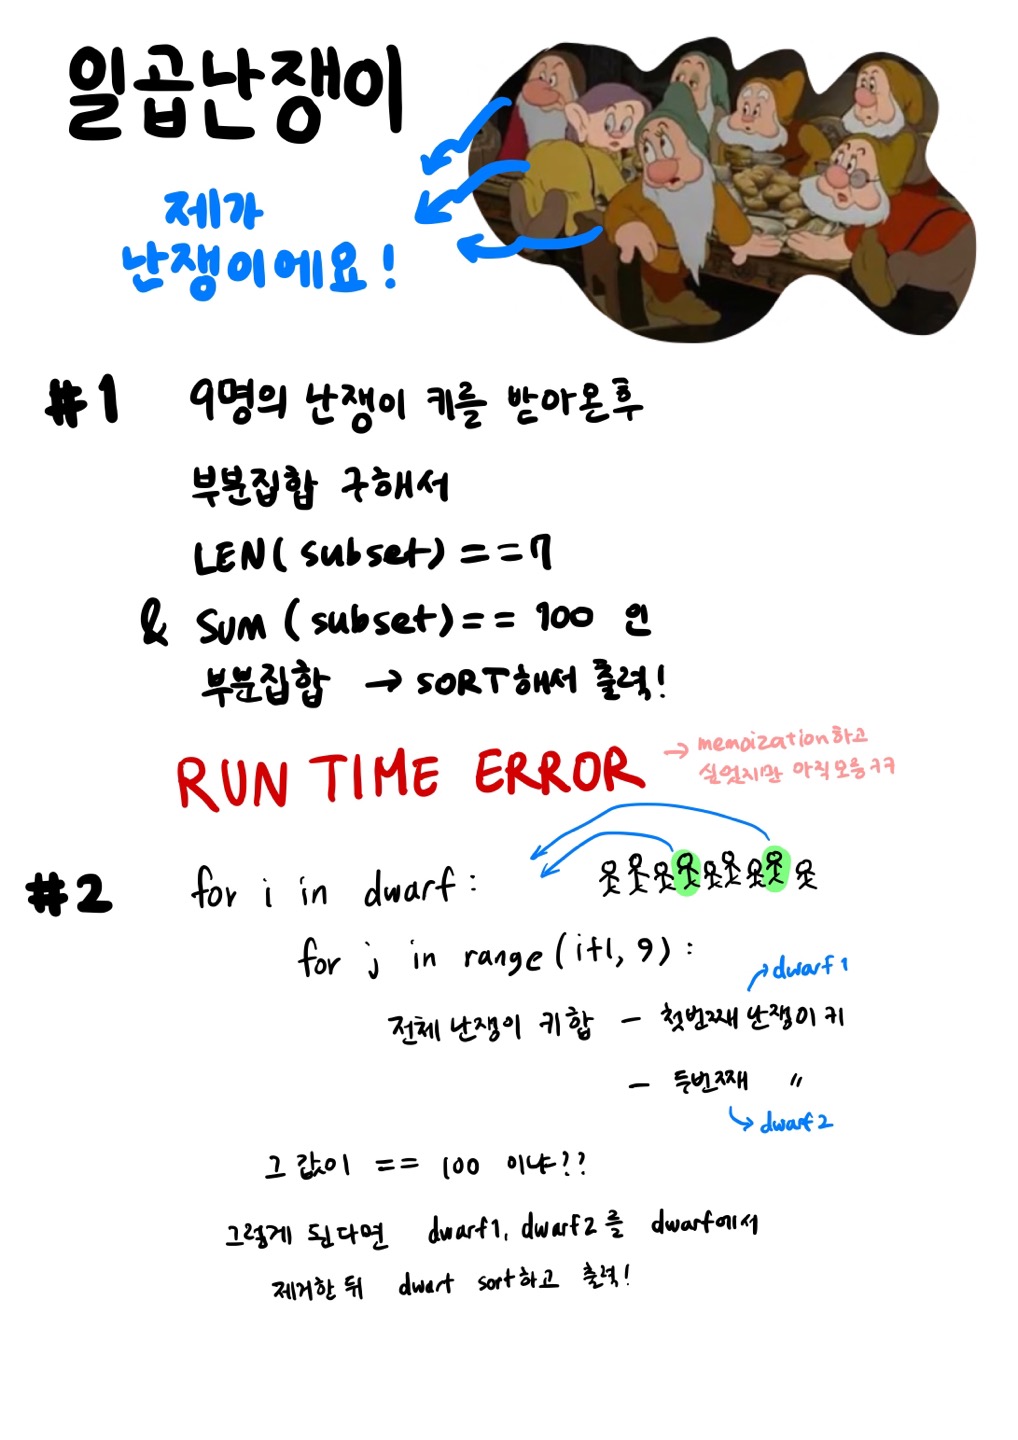 일곱난쟁이
제가
난쟁이에요!
#1 9명의 난쟁이 키를 받아온후
부분집합 구해서
LEN(subset)==7
& SUM(subset)== 100 인
부분집합 → SORT해서 출력!
RUN TIME ERROR
→ memoization하고
싶었지만 아직모름ㅋㅋ
#2 for i in dwarf:
for j in range(i+1, 9):
→dwarf1
전체난쟁이 키합 - 첫번째난쟁이키
- 두번째 〃
→dwarf2
그 값이 == 100 이냐??
그렇게 된다면 dwarf1, dwarf2를 dwarf에서
제거한뒤 dwarf sort하고 출력!